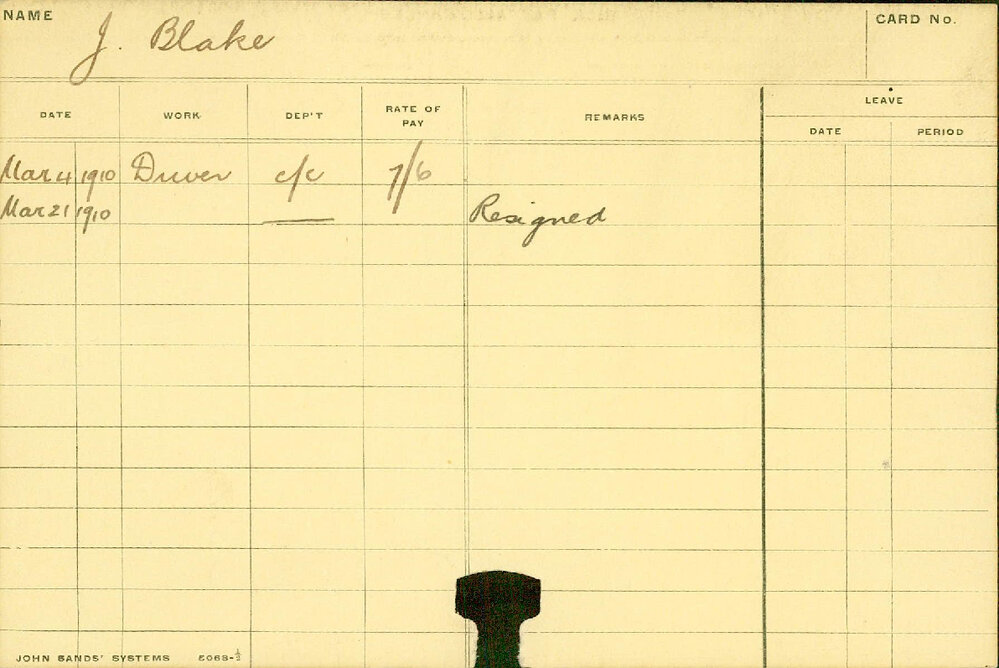 NAME
J. Blake
CARD No.
DATE WORK DEP'T RATE OF PAY REMARKS LEAVE
DATE PERIOD
Mar 4 1910 Driver c/c 7/6
Mar 21 1910 —— Resigned
JOHN SANDS' SYSTEMS 5068-½